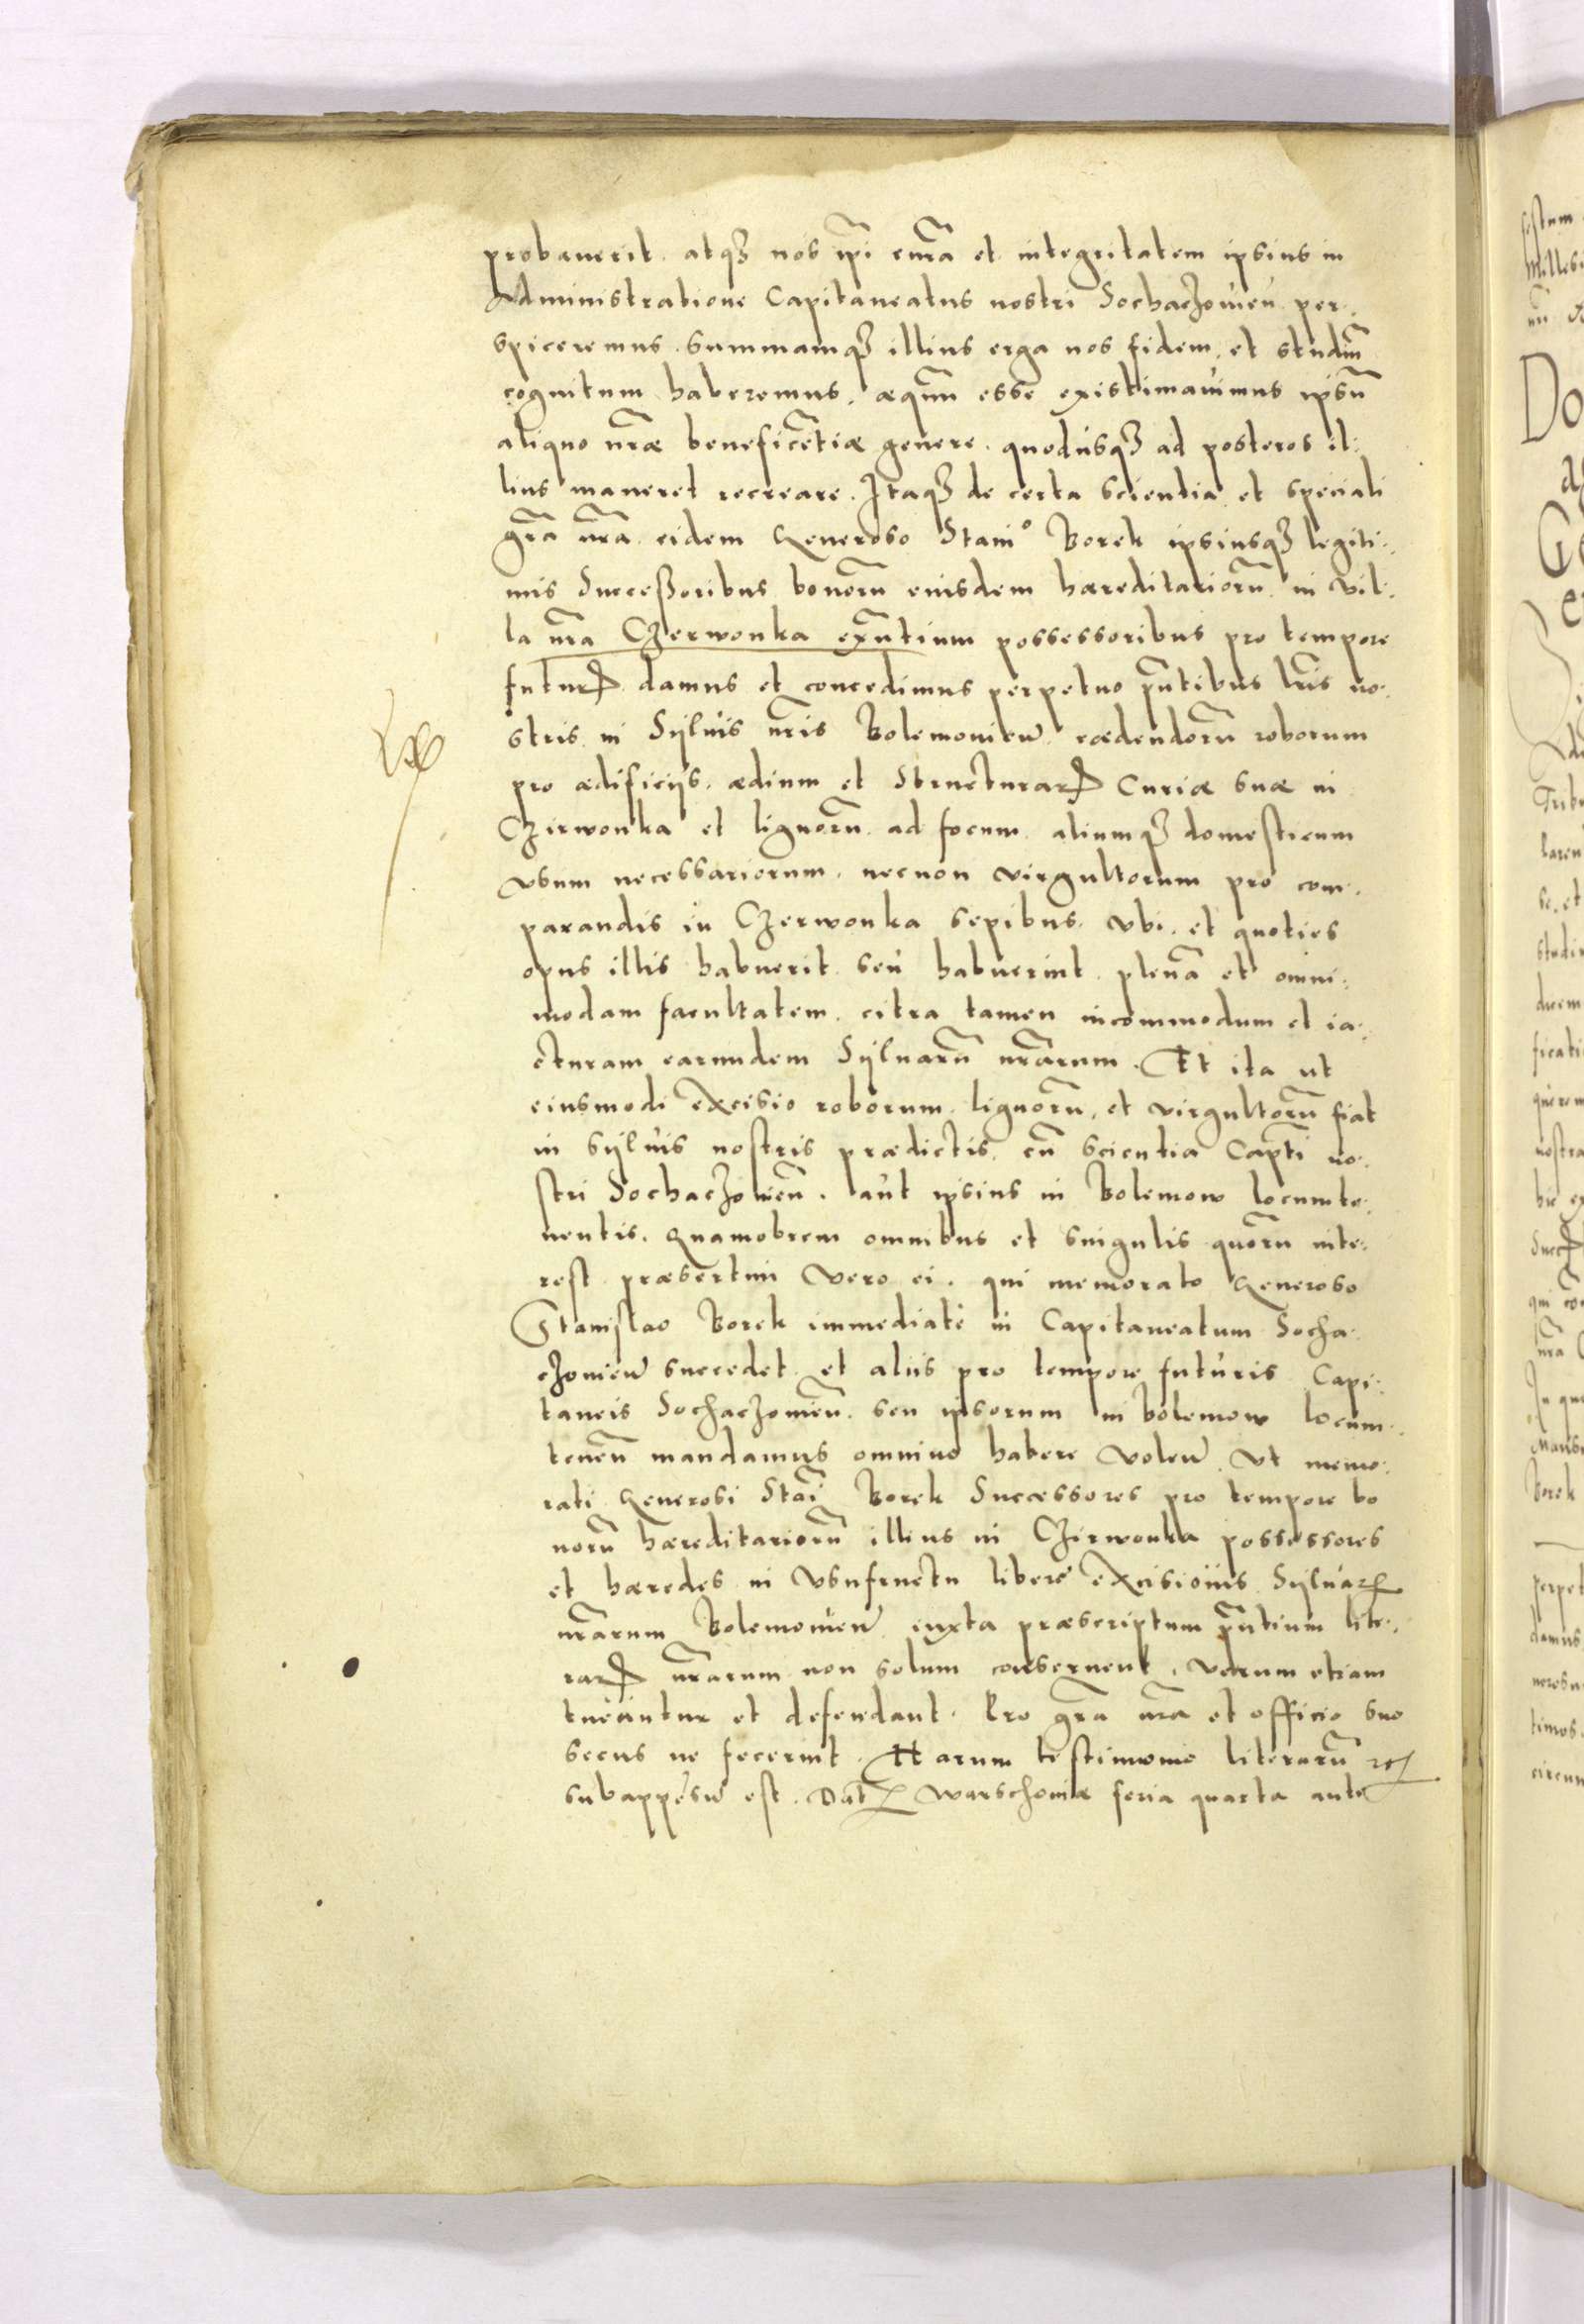 probauerit. atqꝫ nos ip̃i curã et integritatem ipsius in
Administratione Capitaneatus nostri Sochaczouieñ per-
spiceremus. summamqꝫ illius erga nos fidem, et studiũ
cognitum haberemus. æquũ esse existimauimus ipsũ
aliquo nr̃æ beneficẽtiæ genere. quod usqꝫ ad posteros il-
lius maneret recreare. Itaqꝫ de certa scientia et speciali
gr̃a nr̃a eidem Generoso Stanio Borek ipsiusqꝫ legiti-
mis Succeßoribus bonorũ eiusdem hæreditariorũ in vil-
la nr̃a Czerwonka exñtium possessoribus pro tempore
futurꝝ damus et concedimus perpetuo pñtibus lr̃is no-
stris in Syluis nr̃is Bolemouieñ. cædendorũ roborum
pro ædificijs. ædium et Structurarꝝ Curiæ suæ in
Czirwonka et lignorũ ad focum aliumqꝫ domesticum
vsum necessariorum. necnon virgultorum pro com-
parandis in Czerwonka sepibus. vbi. et quoties
opus illis habuerit seu habuerint. plenã et omni-
modam facultatem. citra tamen incommodum et ia-
cturam earundem Syluarũ nr̃arum. Et ita ut
eiusmodi excisio roborum. lignorũ, et virgultorũ fiat
in syluis nostris prædictis. cũ scientia Capt̃i no-
stri Sochaczouieñ. aut ipsius in Bolemow locumte-
nentis. Quamobrem omnibus et singulis quorũ inte-
rest præsertim vero ei. qui memorato Generoso
Stanislao Borek immediate in Capitaneatum Socha-
czouieñ succedet et aliis pro tempore futuris Capi-
taneis Sochaczouieñ. seu ipsorum in bolemow locum-
teneñ mandamus omnino habere voleñ. Ut memo-
rati Generosi Stañi Borek Successores pro tempore bo
norũ hæreditariorũ illius in Czirwonka possessores
et hæredes in vsufructu libere excisionis Syluarꝝ
nr̃arum Bolemouieñ iuxta præscriptum pñtium lite-
rarꝝ nr̃arum non solum conseruent. verum etiam
tueantur et defendant. Pro gr̃a nr̃a et officio suo
secus ne fecerint. Harum testimonio literarũ ꝛc̃
subappensũ est. Datꝝ Warschouiæ feria quarta ante